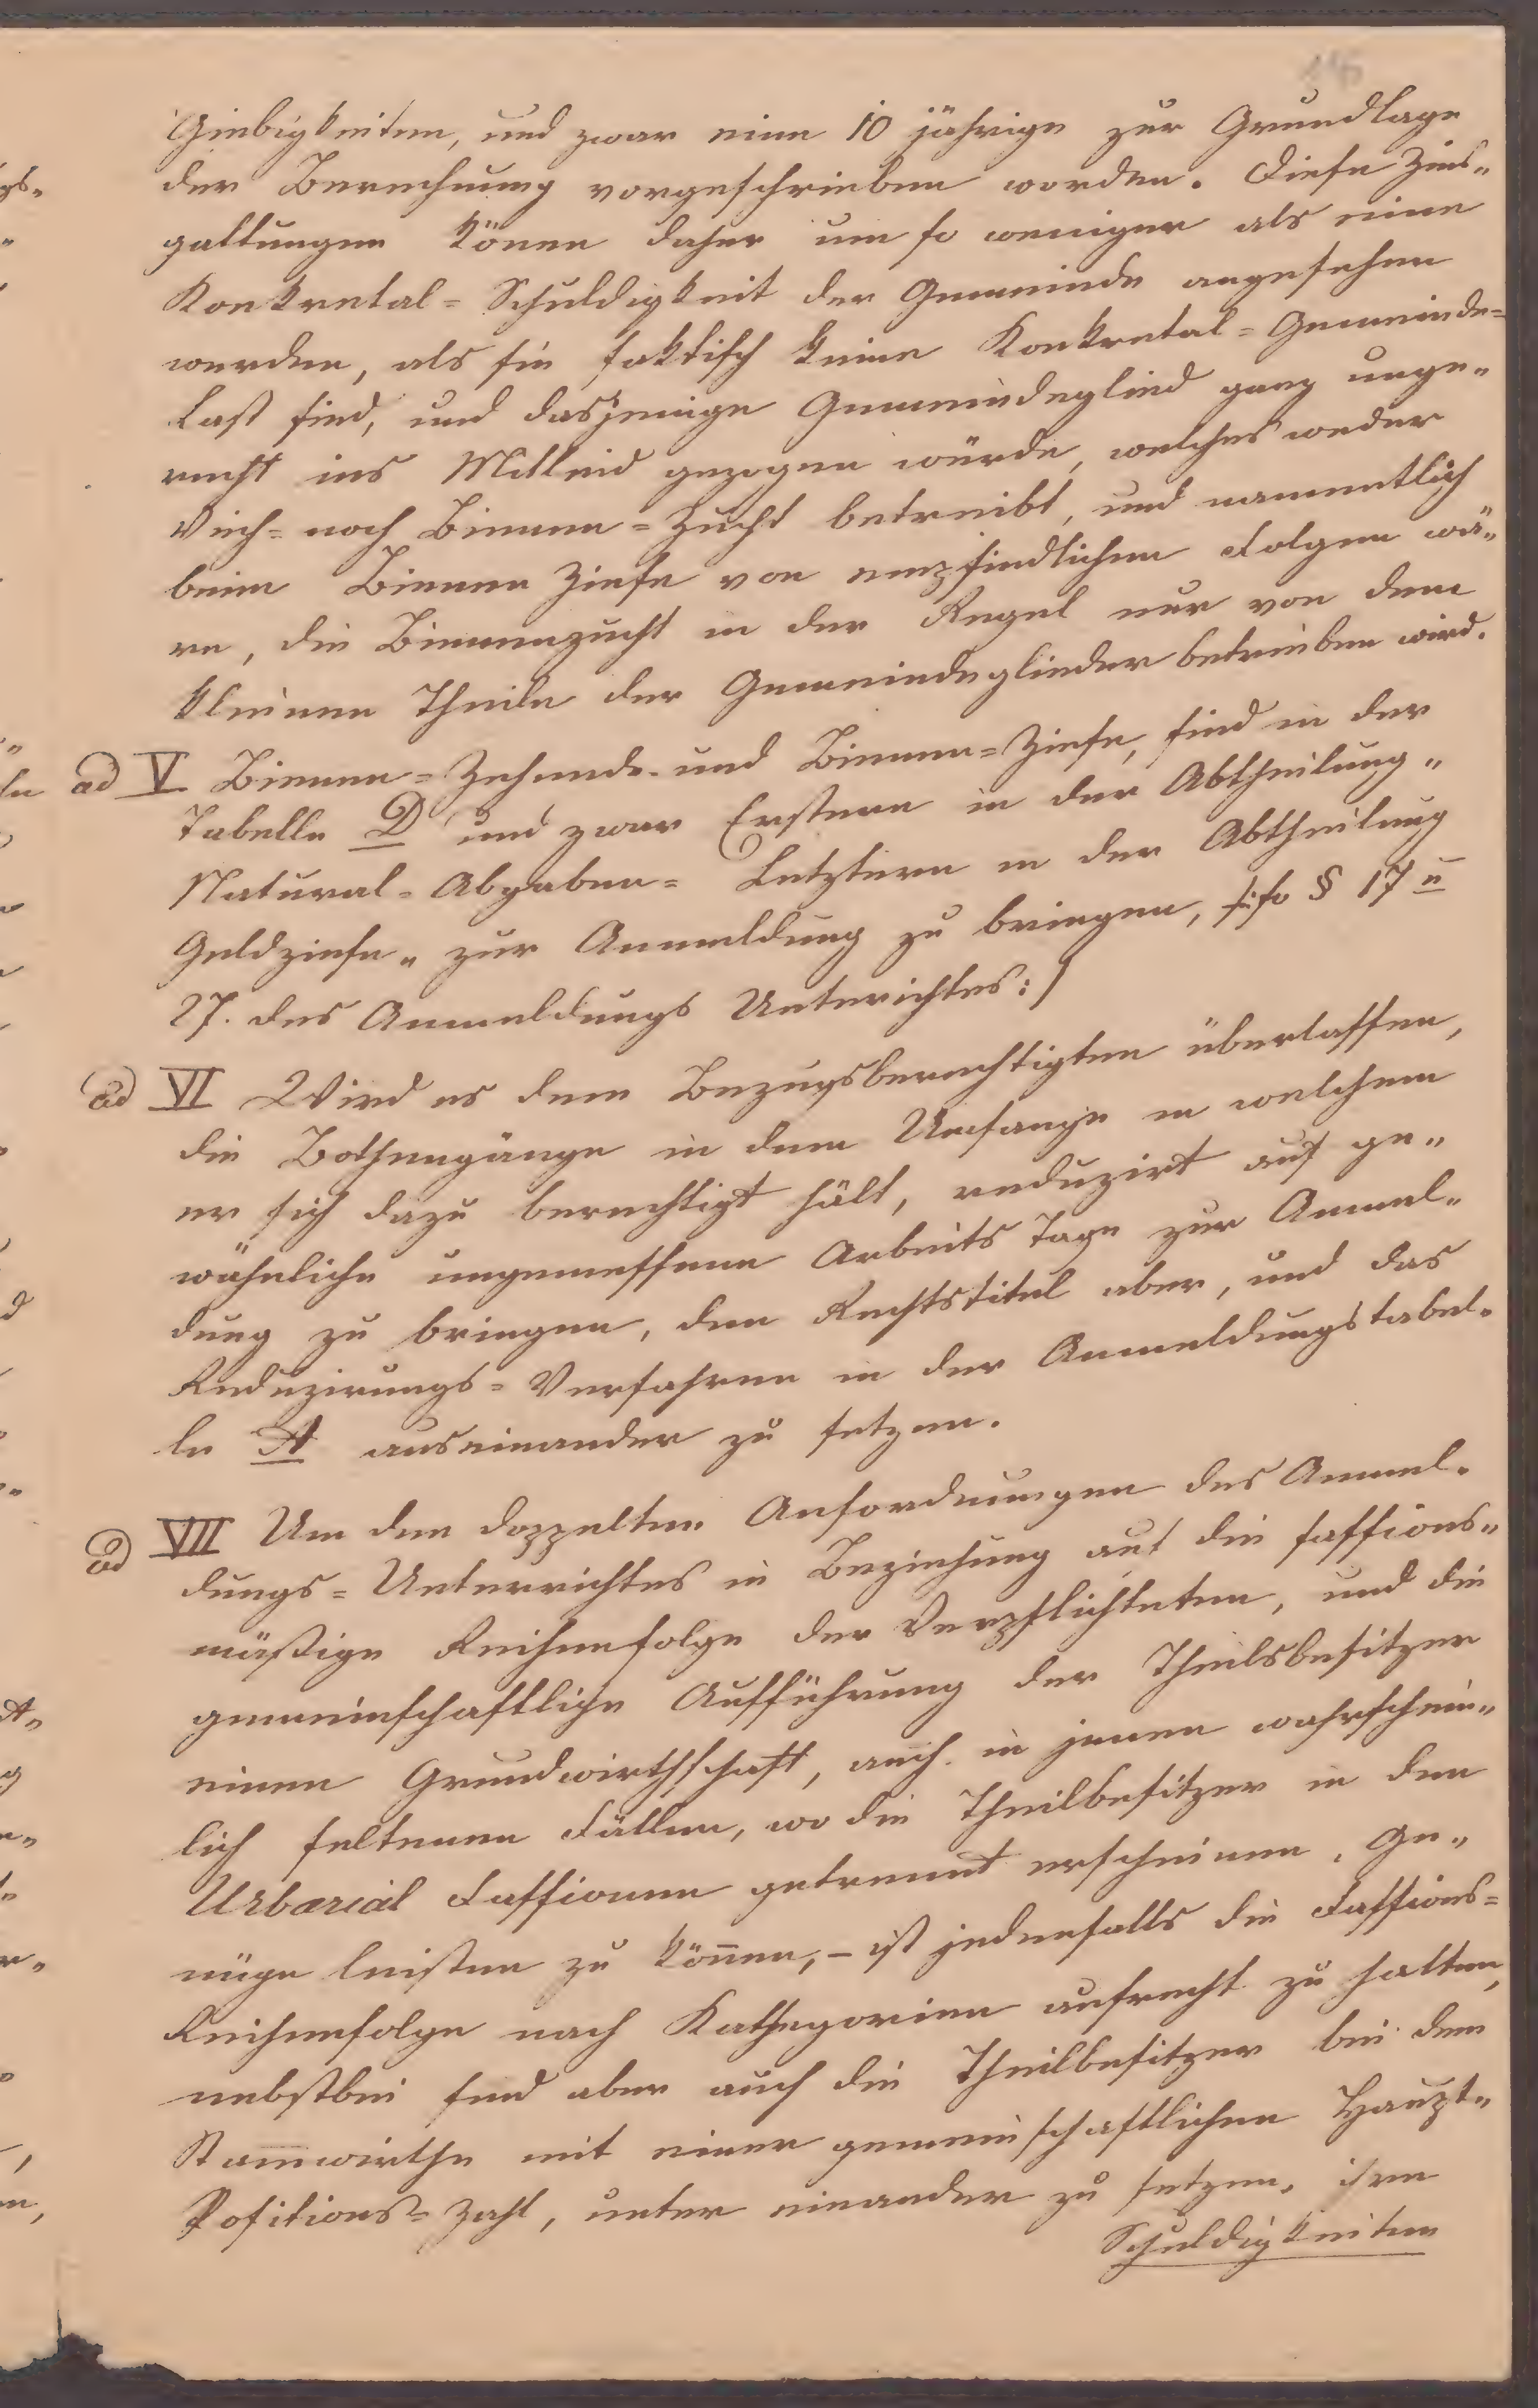 Giebigkeiten, und zwar eine 10 jährige zur Grundlage
der Berechnung vorgeschrieben worden. Diese Zins„
gattungen könen daher um so weniger als eine
Konkretal= Schuldigkeit der Gemeinde angesehen
werden, als sie faktisch keine Konkretal= Gemeinde=
Last sind, und dasjenige Gemeindeglied ganz unge„
recht ins Mitleid gezogen würde, welches weder
Vieh= noch Bienen= Zucht betreibt, und namentlich
beim Bienen Zinse von empfindlichen Folgen wä„
re, die Bienenzucht in der Regel nur von dem
kleinen Theile der Gemeindeglieder betrieben wird.
ad V Bienen= Zehende- und Bienen= Zinse, sind in der
Tabelle D und zwar Erstere in der Abtheilung„
Natural= Abgaben= Letztere in der Abtheilung
Geldzinse„ zur Anmeldung zu bringen, so § 17 u
27. des Anmeldungs Unterichtes:/
ad VI Wird es dem Bezugsberechtigten überlassen,
die Bothengänge in dem Umfange in welchem
er sich dazu berechtigt hält, reduzirt auf ge„
wöhnliche ungemessene Arbeits Tage zur Anmel„
dung zu bringen, den Rechtstitel aber, und das
Reduzirungs= Verfahren in der Anmeldungstabel„
le A auseinander zu setzen.
ad VII Um den doppelten Anfordnungen des Anmel„
dungs= Unterrichtes in Beziehung auf die fassions„
mäßige Reihenfolge der Verpflichteten, und die
gemeinschaftlige Aufführung der Theilsbesitzer
einer Grundwirthschaft, auch in jenen wahrschein„
lich seltenen Fällen, wo die Theilbesitzer in den
Urbarial Fassionen getrennt erscheinen, Ge„
nüge leisten zu können,– ist jedenfalls die Fassions=
Reihenfolge nach Kathegorien aufrecht zu halten,
nebstbei sind aber auch die Theilbesitzer bei dem
Stammwirthe mit einer gemeinschaftlichen Haupt„
Positions= Zahl, unter einander zu setzen, ihre
Schuldigkeiten